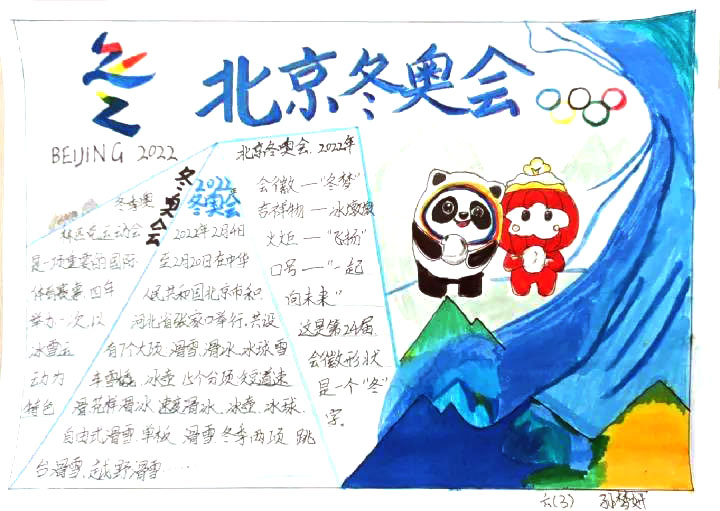 北京冬奥会
BEIJING 2022
冬奥会
2022年
冬奥会
冬季奥
林匹克运动会
是一项重要的国际
体育赛事,四年
举办一次,以
冰雪运
动为
特色
2022年2月4日
至2月20日在中华
人民共和国北京市和
河北省张家口举行,共设
有7个大项,滑雪,滑冰,冰球,雪
车雪橇,冰壶,15个分项,短道速
滑,花样滑冰,速度滑冰,冰壶,冰球,
自由式滑雪,单板滑雪,冬季两项,跳
台滑雪,越野滑雪……
北京冬奥会.2022年
会徽—“冬梦”
吉祥物—冰墩墩
火炬—“飞扬”
口号—“一起
向未来”
这是第24届
会徽形状
是一个“冬”
字.
六(3) 孙梦妍